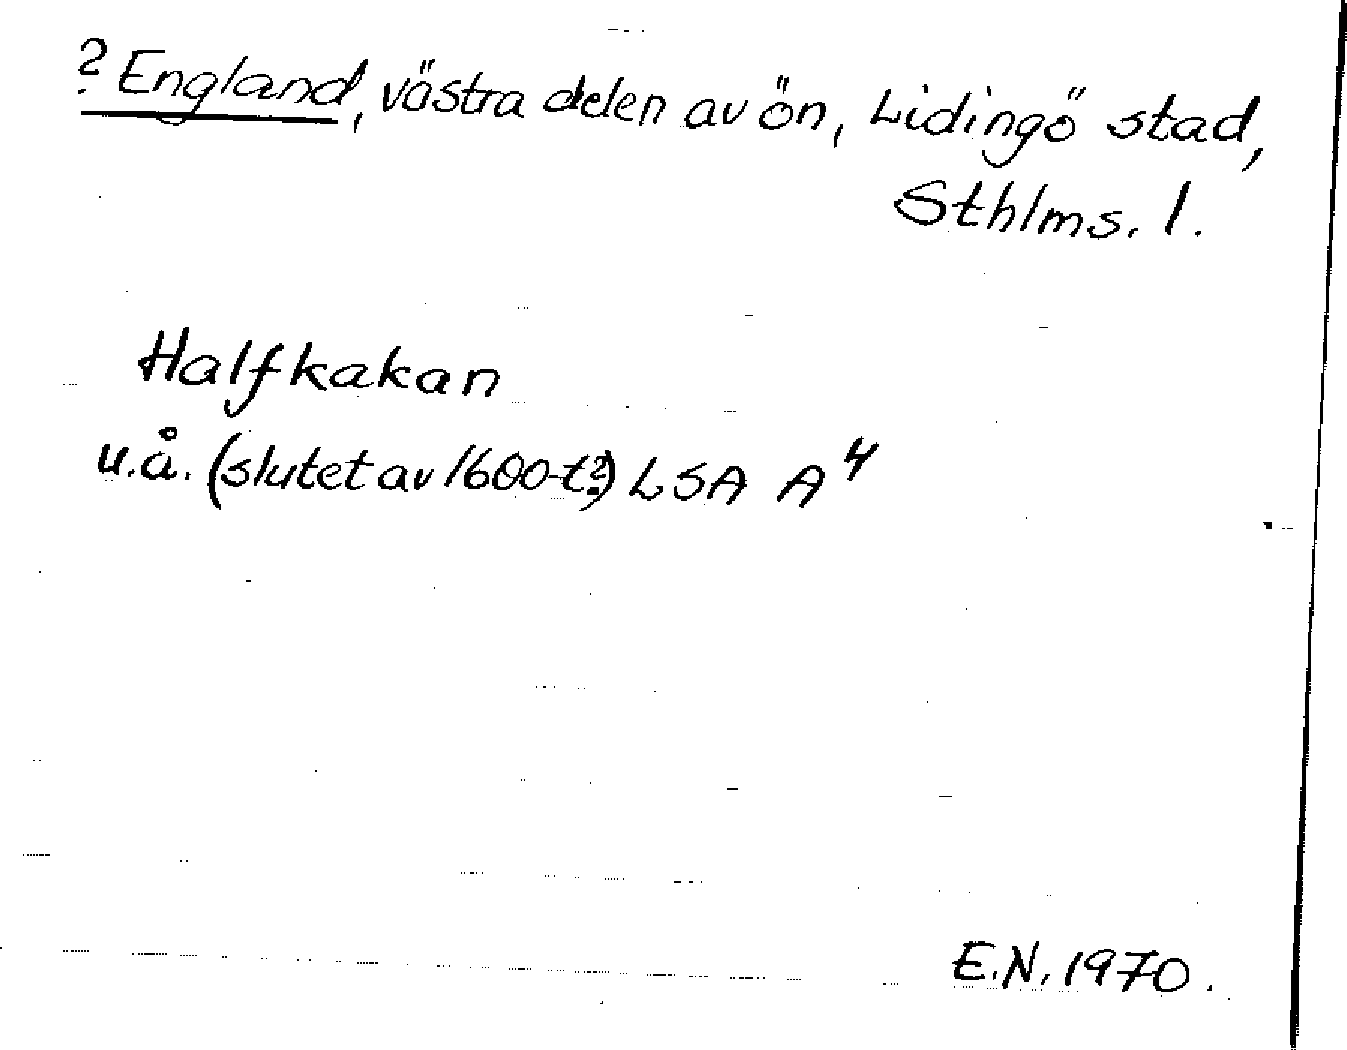 ? England, västra delen av ön, Lidingö stad,
Sthlms. l.
Halfkakan
u.å. (slutet av 1600-t?) LSA A⁴
E.N. 1970.